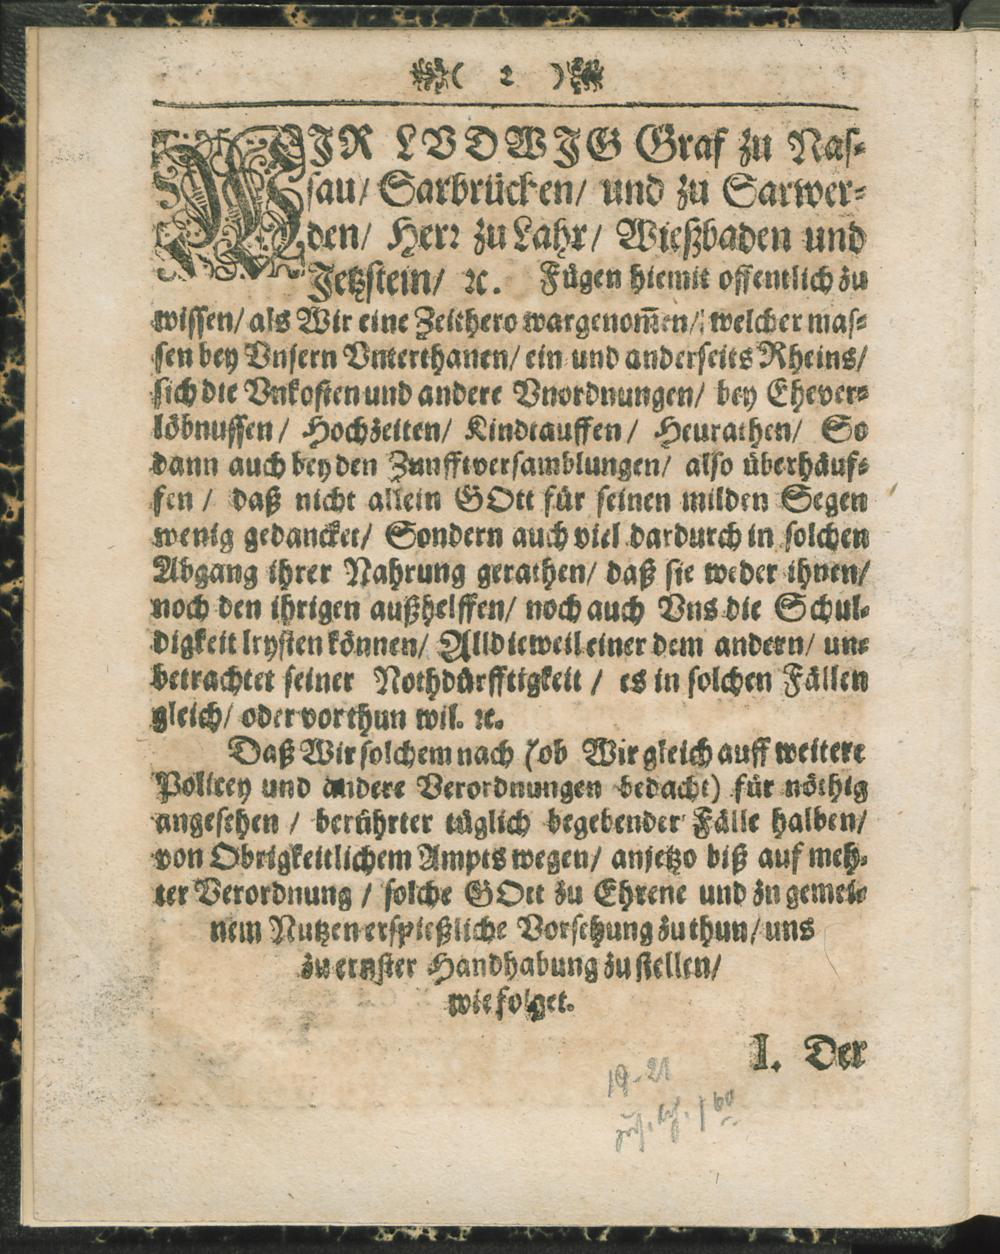 ( 2 )
WIR LVDWIG Graf zu Nas-
sau/ Sarbrücken/ und zu Sarwer-
den/ Herr zu Lahr/ Wießbaden und
Jetzstein/ ꝛc. Fügen hiemit offentlich zu
wissen/ als Wir eine Zeithero wargenom̄en/ welcher mas-
sen bey Vnsern Vnterthanen/ ein und anderseits Rheins/
sich die Vnkosten und andere Vnordnungen/ bey Ehever-
löbnussen/ Hochzeiten/ Kindtauffen/ Heurathen/ So
dann auch bey den Zunfftversamblungen/ also überhäuf-
fen/ daß nicht allein GOtt für seinen milden Segen
wenig gedancket/ Sondern auch viel dardurch in solchen
Abgang ihrer Nahrung gerathen/ daß sie weder ihnen/
noch den ihrigen außhelffen/ noch auch Vns die Schul-
digkeit leysten können/ Alldieweil einer dem andern/ un-
betrachtet seiner Nothdürfftigkeit/ es in solchen Fällen
gleich/ oder vorthun wil. ꝛc.
Daß Wir solchem nach (ob Wir gleich auff weitere
Policey und andere Verordnungen bedacht) für nöthig
angesehen/ berührter täglich begebender Fälle halben/
von Obrigkeitlichem Ampts wegen/ anjetzo biß auf meh-
rer Verordnung/ solche GOtt zu Ehrene und zu gemei-
nem Nutzen ersprießliche Vorsehung zu thun/ uns
zu ernster Handhabung zu stellen/
wie folget.
I. Der
19-21